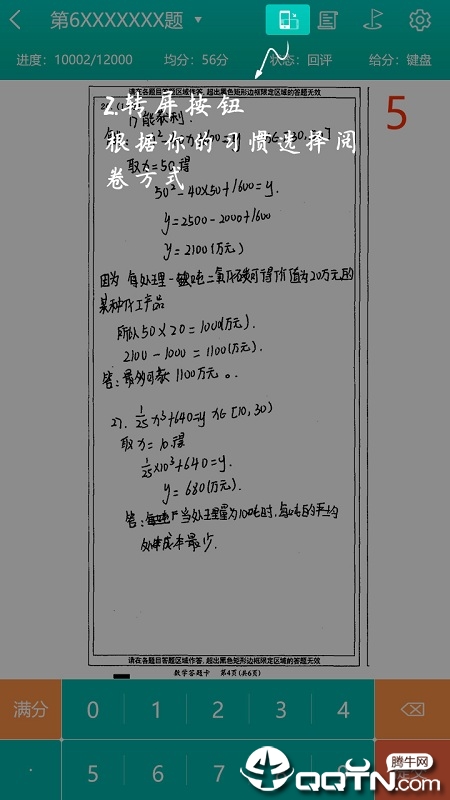 第6XXXXXXX题
进度：10002/12000 均分：56分 状态：回评 给分：键盘
请在各题目答题区域作答，超出黑色矩形边框限定区域的答题无效
5
2.转屏按钮
根据你的习惯选择阅
卷方式
1) 能获利.
取x=50得
50²-40×50+1600=y.
y=2500-2000+1600
y=2100(万元)
因为 每处理一吨二氧化碳可得价值为20万元的
某种化工产品
所以 50×20=1000(万元).
2100-1000=1100(万元).
答：最多可 1100万元。
2). 1/25 x³+640=y x∈[10,30)
取x=10.得
1/25×10³+640=y.
y=680(万元).
答：当处理量为10吨时，每吨的平均
处理成本最少.
请在各题目答题区域作答，超出黑色矩形边框限定区域的答题无效
数学答题卡 第4页(共6页)
满分 0 1 2 3 4
· 5 6 7 8 9
腾牛网
QQTN.com